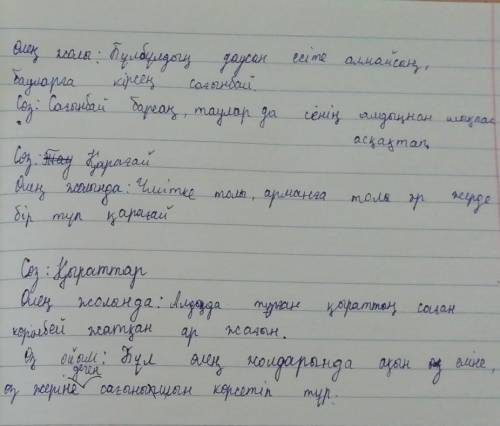 Өлең жолы: Бұлбұлдың даусын есіте алмайсың,
Бауларға кірсең сағынбай.
Сөз: Сағынбай барсаң, таулар да сенің алдыңнан шықпас
асқақтап,
Сөз: Қарағай
Өлең жолында: Үмітке толы, арманға толы әр жерде
бір түп қарағай
Сөз: Қыраттар
Өлең жолында: Алдыңда тұрған қыраттың соңан
көрінбей жатқан ар жағын.
Өз ойым: Бұл өлең жолдарында ақын өз еліне,
өз жеріне деген сағынышын көрсетіп тұр.